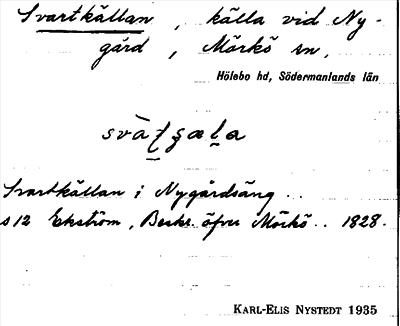 Svartkällan, källa vid Ny-
gård, Mörkö sn,
Hölebo hd, Södermanlands län
Svartkällan i Nygårdsäng ..
s 12 Ekström, Beskr. öfver Mörkö .. 1828.
KARL-ELIS NYSTEDT 1935